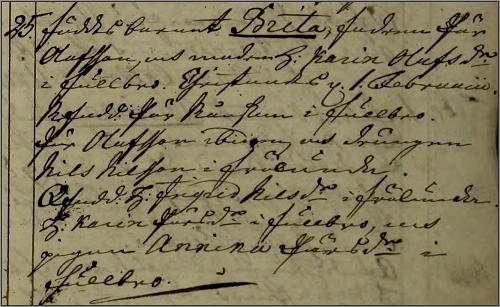 25. föddes barnet Brita, fadren Pär
Olufsson, och modren H. Karin Olufs dr
i Fullbro. Christnades y. 1. Februarii.
Pär i Fullbro.
Pär Olufsson och drängen
Nils Nilsson i
H. Ingrid Nils dr i
H. Karin Pärs dr i Fullbro, och
pigan Annika Pärs dr i
Fullbro.